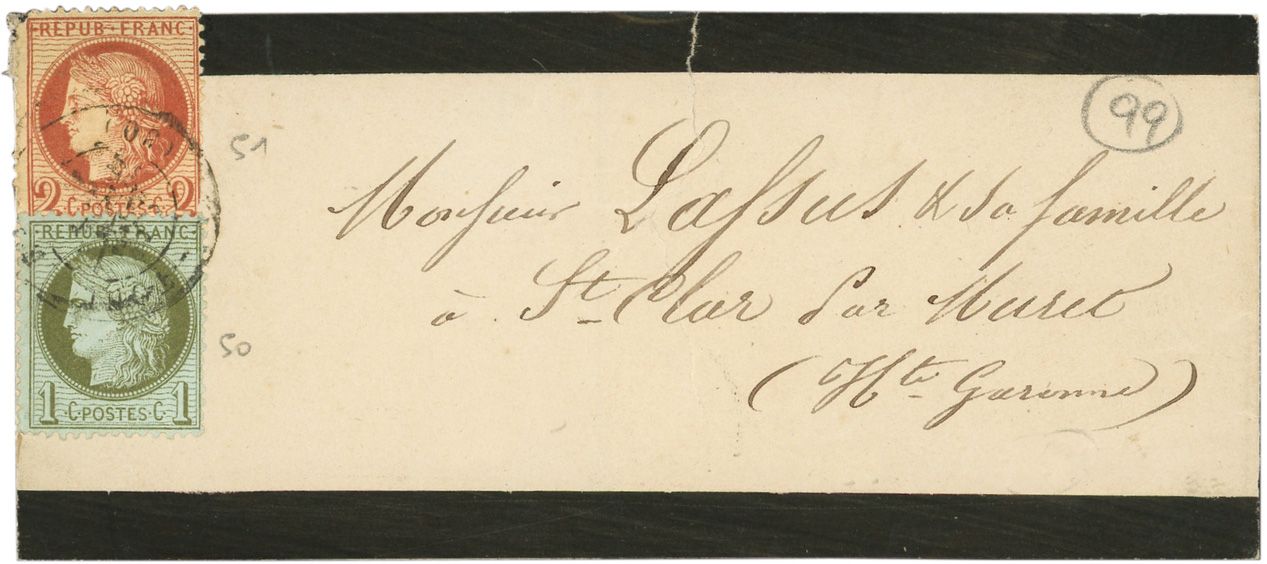 REPUB·FRANC
2 C·POSTES·C 2
REPUB·FRANC
1 C·POSTES·C 1
51
50
99
Monsieur Lassus & sa famille
à St Clar par Muret
(Hte Garonne)